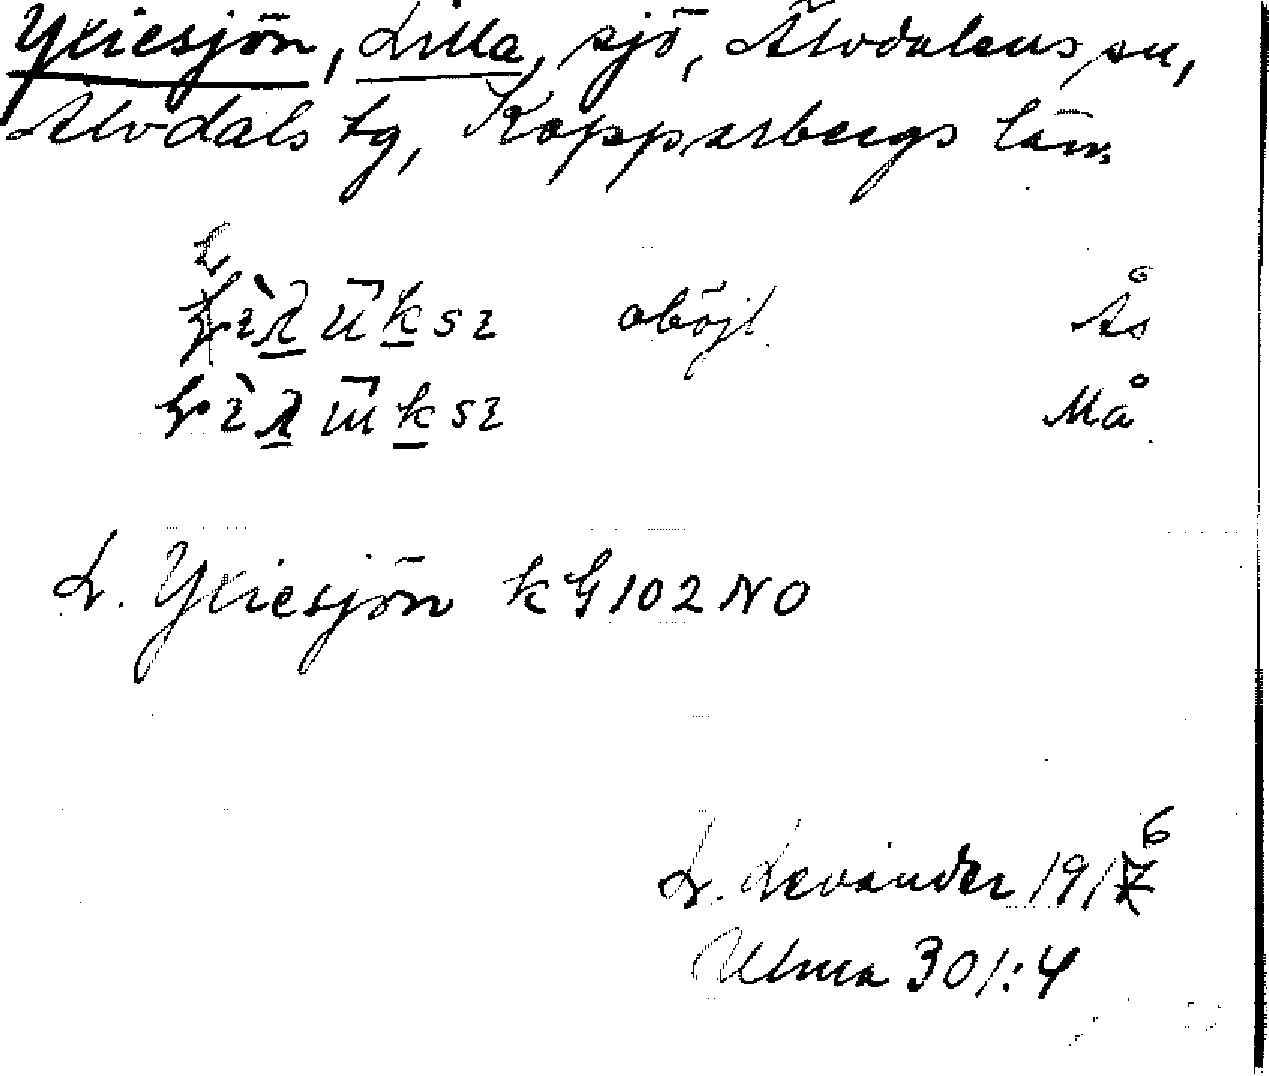 Yxiesjön, Lilla, sjö, Älvdalens sn,
Älvdals tg, Kopparbergs län
oböjl. Ås
Må
L. Yxiesjön kG102NO
6
L. Levander 1917
Ulma 301:4